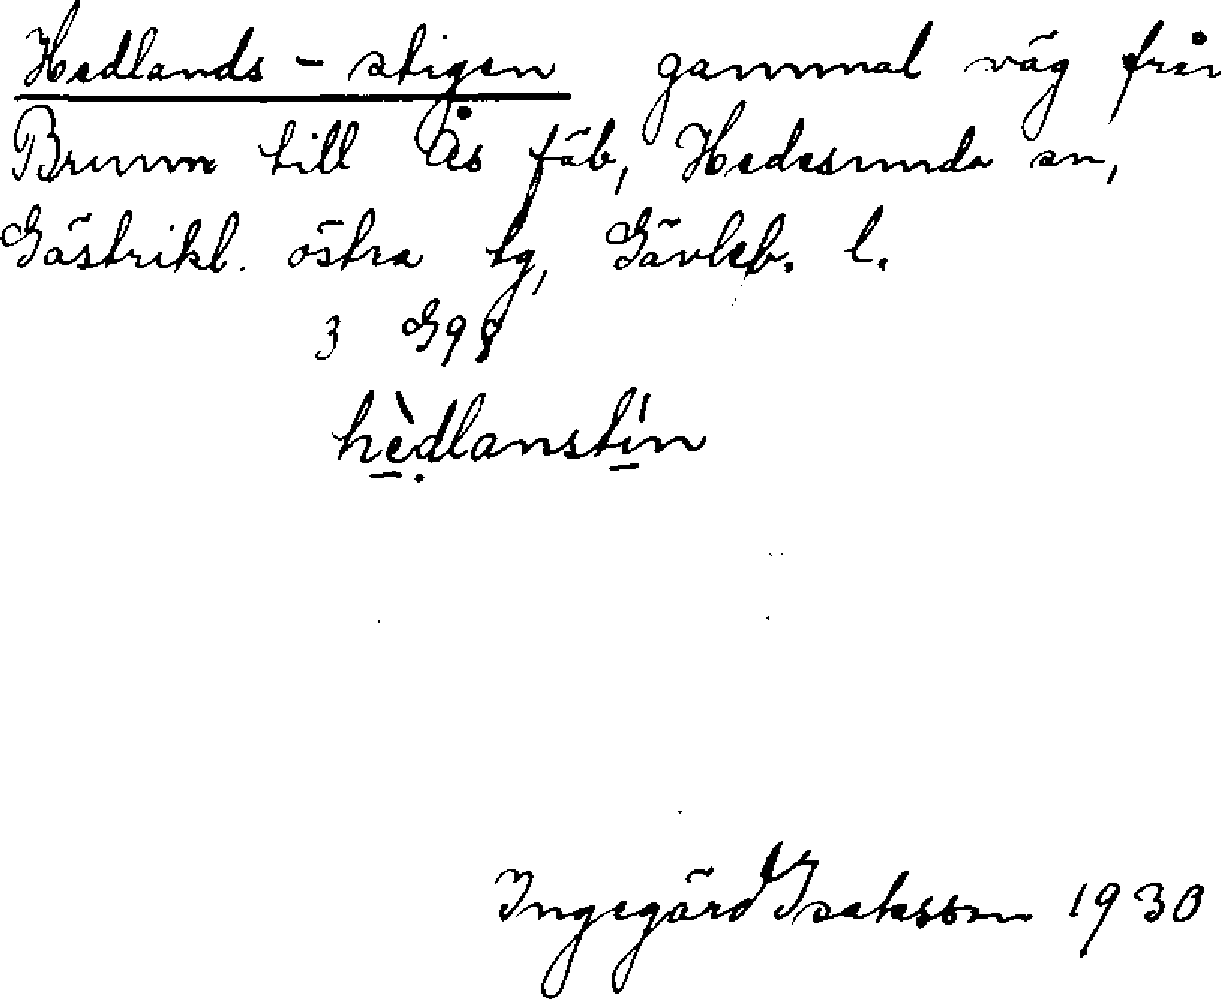 Hedlands - stigen gammal väg från
Brunn till Ås fäb, Hedesunda sn,
Gästrikl. östra tg, Gävleb. l.
3 G98
hèdlanstín
Ingegärd Isaksson 1930